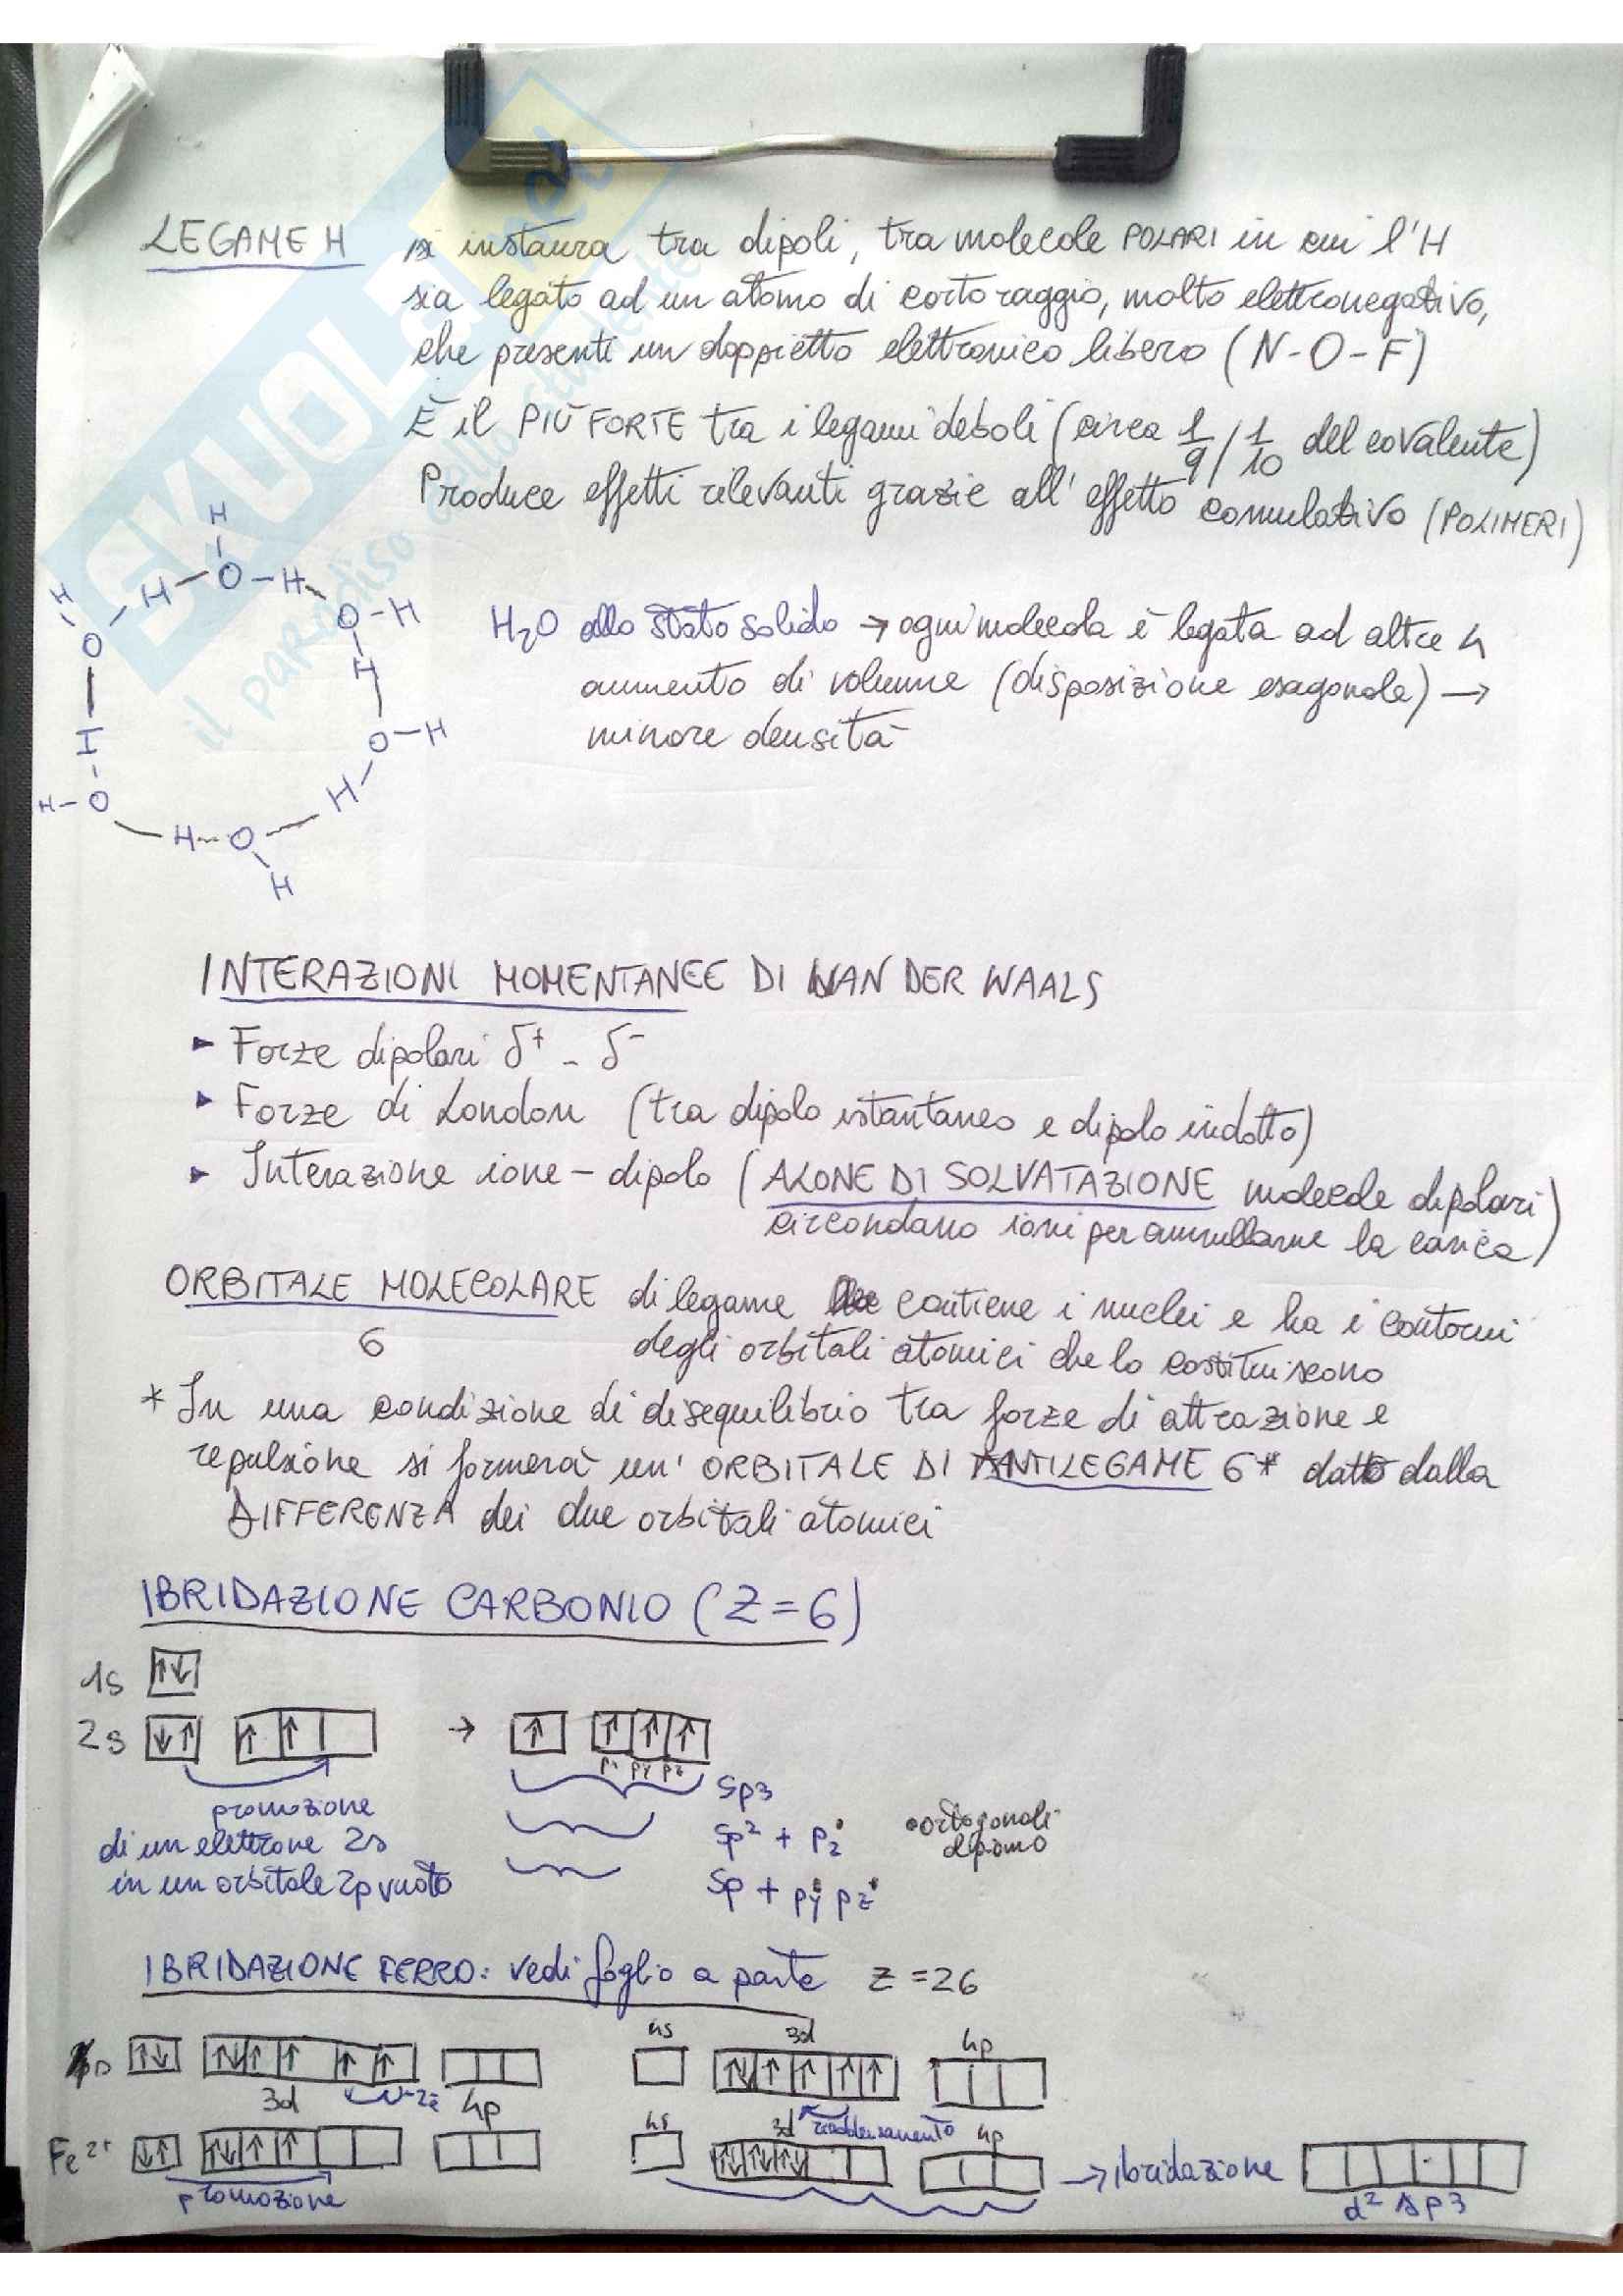 LEGAME H si instaura tra dipoli, tra molecole POLARI in cui l'H
sia legato ad un atomo di corto raggio, molto elettronegativo,
che presenti un doppietto elettronico libero (N-O-F)
È il PIÙ FORTE tra i legami deboli (circa 1/9 / 1/10 del covalente)
Produce effetti rilevanti grazie all'effetto comulativo (POLIMERI)
H
H H-O-H
H O-H
O H
H O-H
H-O H
H-O
H
H₂O allo stato solido → ogni molecola è legata ad altre 4
aumento di volume (disposizione esagonale) →
minore densità
INTERAZIONI MOMENTANEE DI VAN DER WAALS
▸ Forze dipolari δ⁺ - δ⁻
▸ Forze di London (tra dipolo istantaneo e dipolo indotto)
▸ Interazione ione-dipolo (ALONE DI SOLVATAZIONE molecole dipolari
circondano ioni per annullarne la carica)
ORBITALE MOLECOLARE di legame contiene i nuclei e ha i contorni
6 degli orbitali atomici che lo costituiscono
* In una condizione di disequilibrio tra forze di attrazione e
repulsione si formerà un' ORBITALE DI ANTILEGAME 6* dato dalla
DIFFERENZA dei due orbitali atomici
IBRIDAZIONE CARBONIO (Z=6)
1s ↑↓
2s ↓↑ ↑ ↑ → ↑ ↑ ↑ ↑
py pz
promozione sp3
di un elettrone 2s sp² + pz• •ortogonali
dipomo
in un orbitale 2p vuoto sp + py• pz•
IBRIDAZIONE FERRO: vedi foglio a parte Z=26
4s 3d 4p
s ↑↓ ↑↓ ↑ ↑ ↑ ↑ ↑↓ ↑ ↑ ↑ ↑
3d -2e 4p
4s 3d riaddensamento 4p
Fe²⁺ ↓↑ ↑↓ ↑ ↑ ↑↓ ↑↓ ↑↓ → ibridazione
promozione d² sp3
SKUOLA.net
il paradiso dello studente